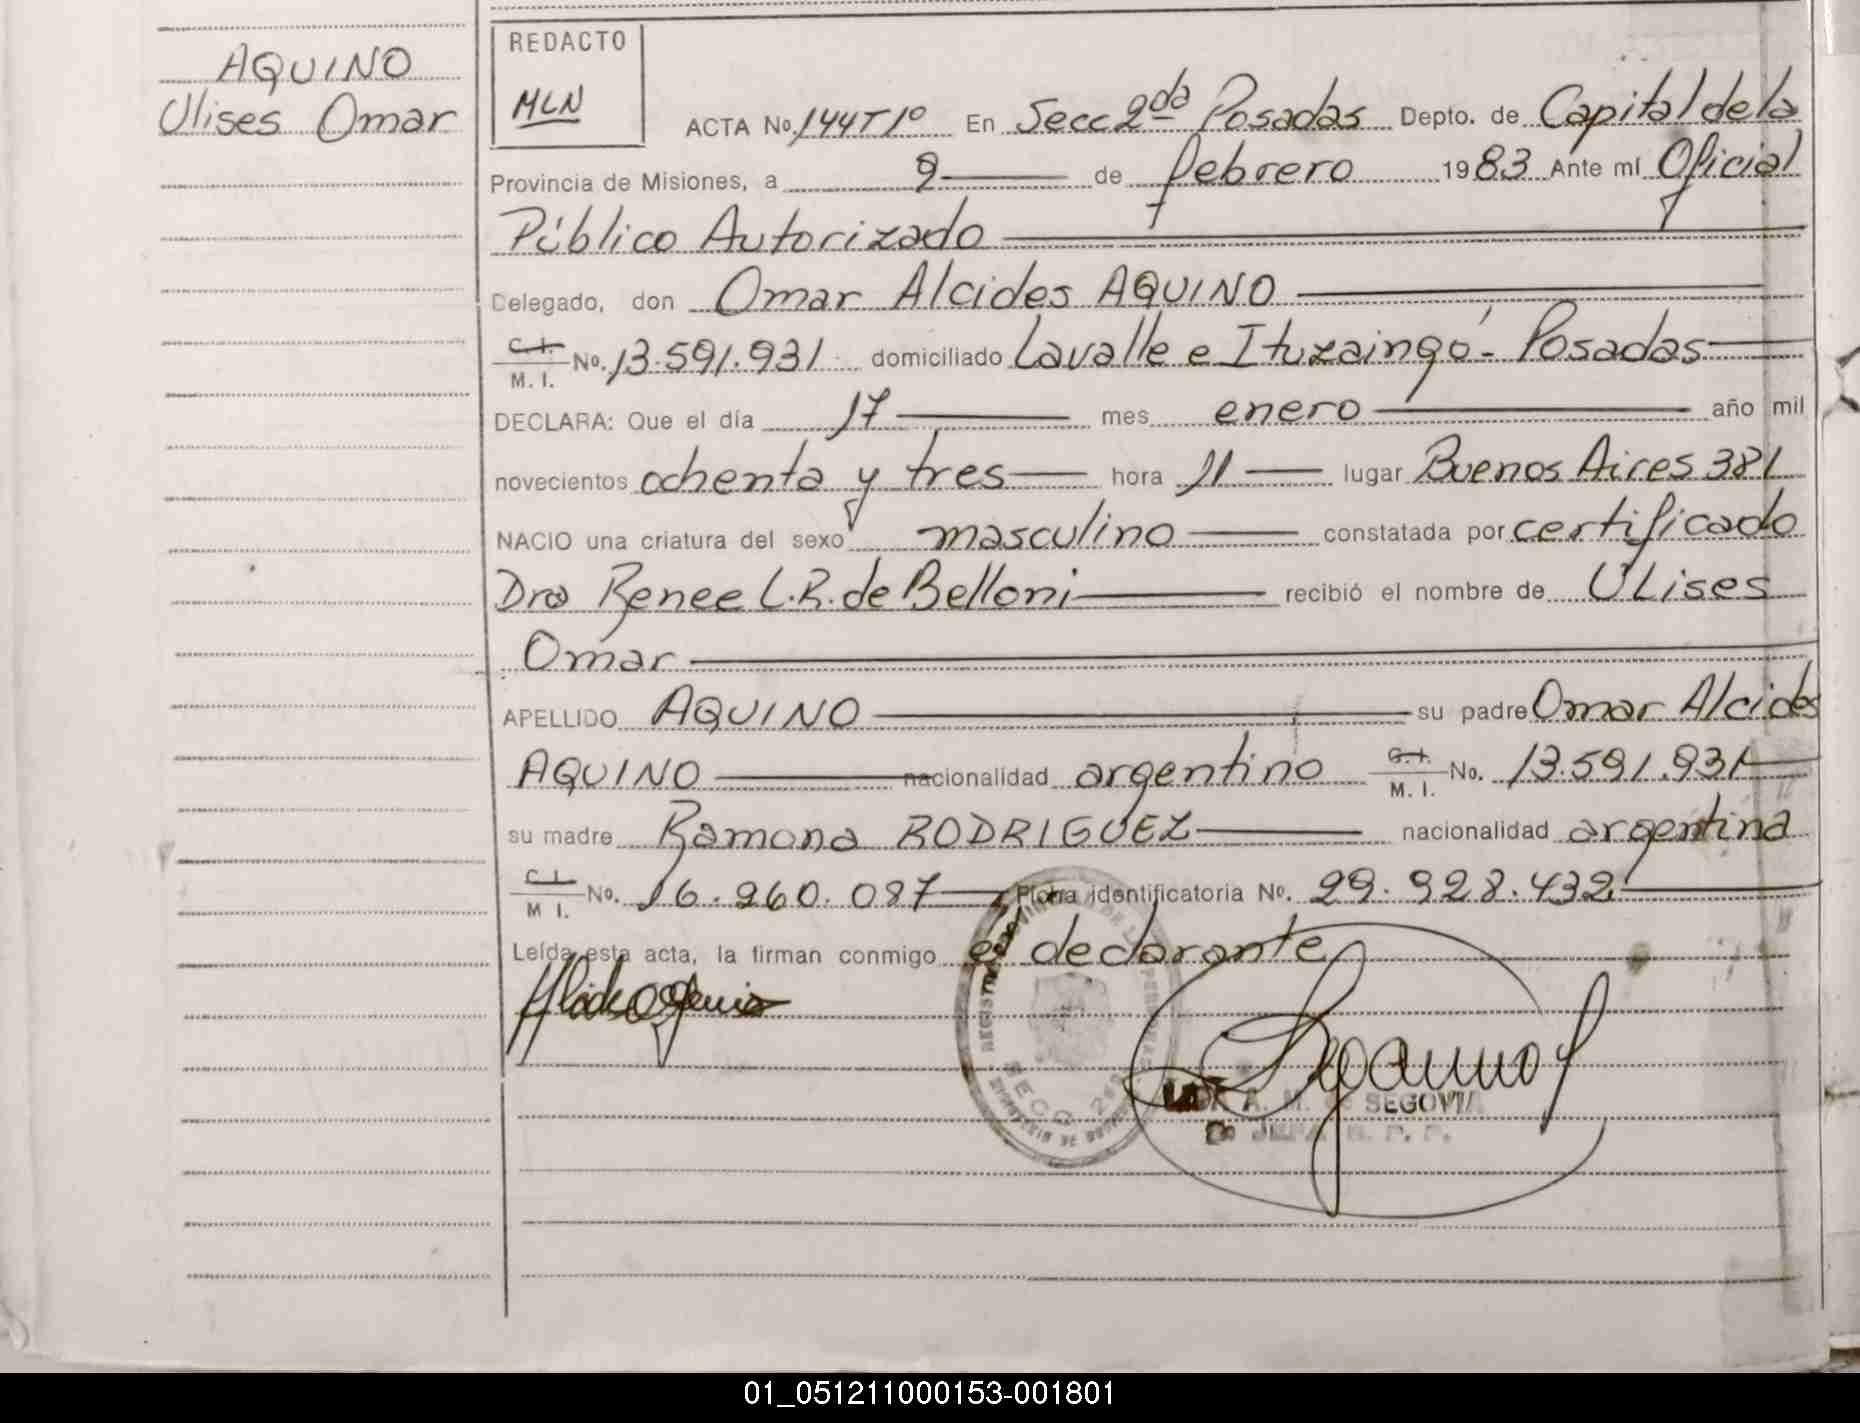 AQUINO
Ulises Omar
REDACTO
MLN
ACTA No. 144T1º En Secc 2da Posadas Depto. de Capital de la
Provincia de Misiones, a 9 de febrero 1983 Ante mí Oficial
Público Autorizado
Delegado, don Omar Alcides AQUINO
C. I. M. I. No. 13.591.931 domiciliado Lavalle e Ituzaingó - Posadas
DECLARA: Que el día 17 mes enero año mil
novecientos ochenta y tres hora 11 lugar Buenos Aires 381
NACIO una criatura del sexo masculino constatada por certificado
Dra Renee L.R. de Belloni recibió el nombre de Ulises
Omar
APELLIDO AQUINO su padre Omar Alcides
AQUINO nacionalidad argentino C. I. M. I. No. 13.591.931
su madre Ramona RODRIGUEZ nacionalidad argentina
C. I. M I. No. 16.960.087 Ficha identificatoria No. 29.928.432
Leída esta acta, la firman conmigo el declarante
SECC 2
A. M. de SEGOVIA
JEFA
01_051211000153-001801